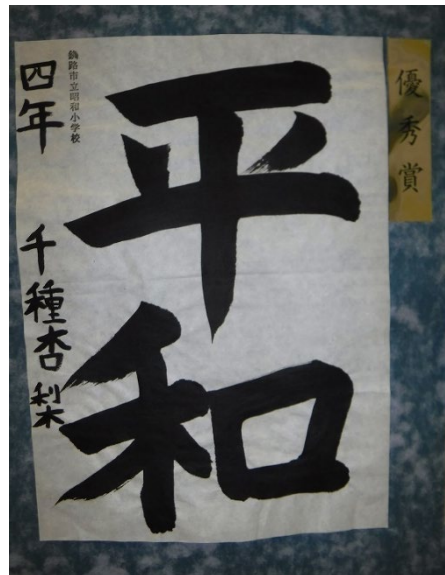 優秀賞
平和
釧路市立昭和小学校
四年 千種杏梨